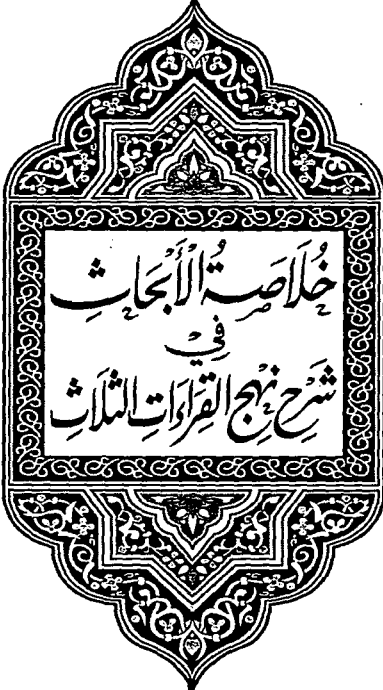 خُلَاصَةُ الْأَبْحَاثِ
فِي
شَرْحِ نَهْجِ الْقِرَاءَاتِ الثَّلَاثِ